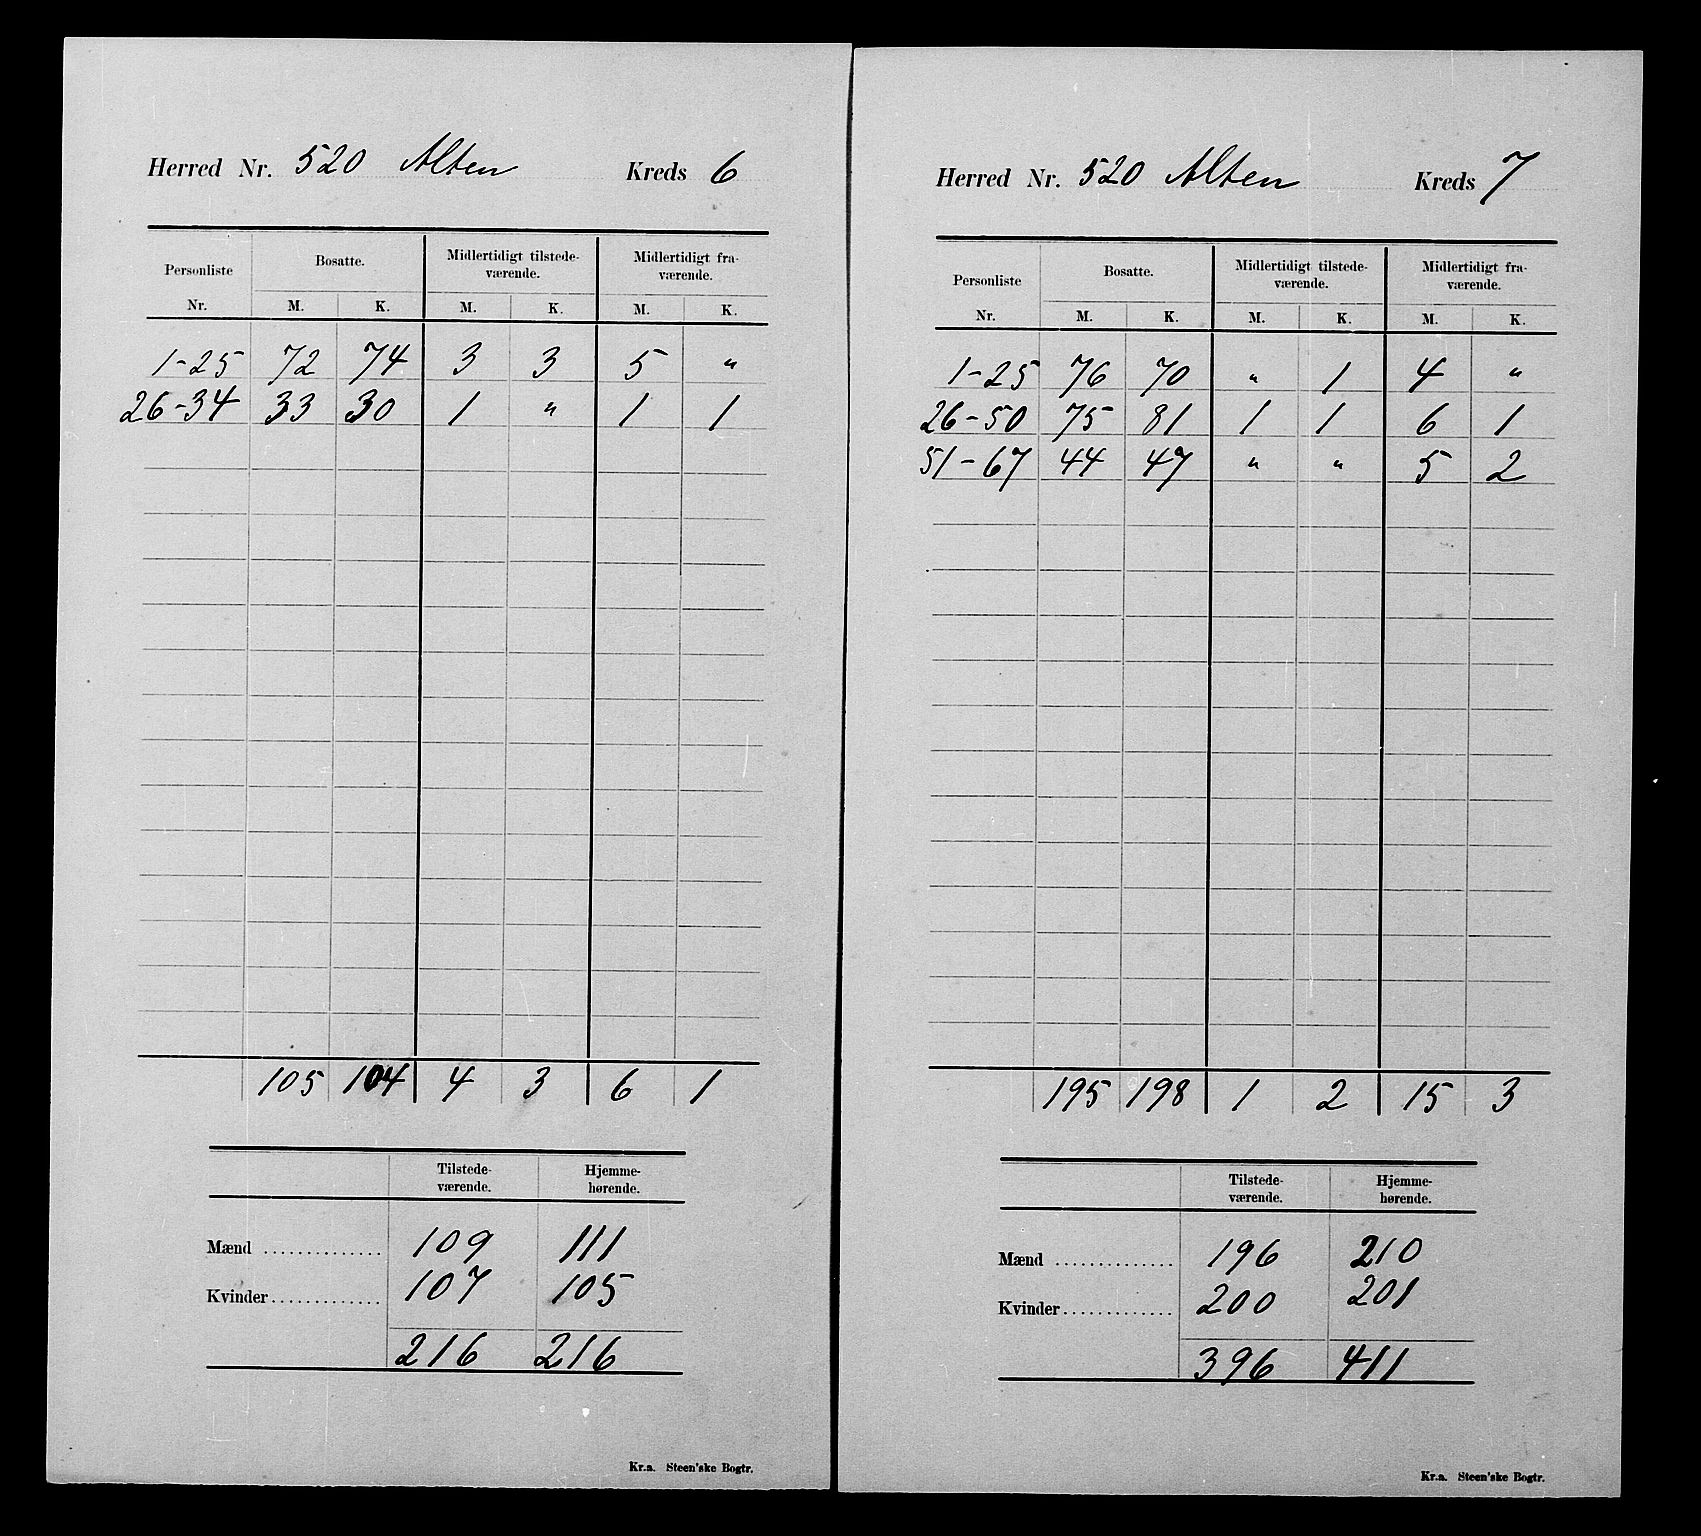 Herred Nr. 520 Alten Kreds 6
Personliste Bosatte. Midlertidigt tilstede- Midlertidigt fra-
værende. værende.
Nr. M. K. M. K. M. K.
1-25 72 74 3 3 5 "
26-34 33 30 1 " 1 1
105 104 4 3 6 1
Tilstede- Hjemme-
værende. hørende.
Mænd .............. 109 111
Kvinder............. 107 105
216 216
Kr.a. Steen'ske Bogtr.
Herred Nr. 520 Alten Kreds 7
Personliste Bosatte. Midlertidigt tilstede- Midlertidigt fra-
værende. værende.
Nr. M. K. M. K. M. K.
1-25 76 70 " 1 4 "
26-50 75 81 1 1 6 1
51-67 44 47 " " 5 2
195 198 1 2 15 3
Tilstede- Hjemme-
værende. hørende.
Mænd .............. 196 210
Kvinder............. 200 201
396 411
Kr.a. Steen'ske Bogtr.